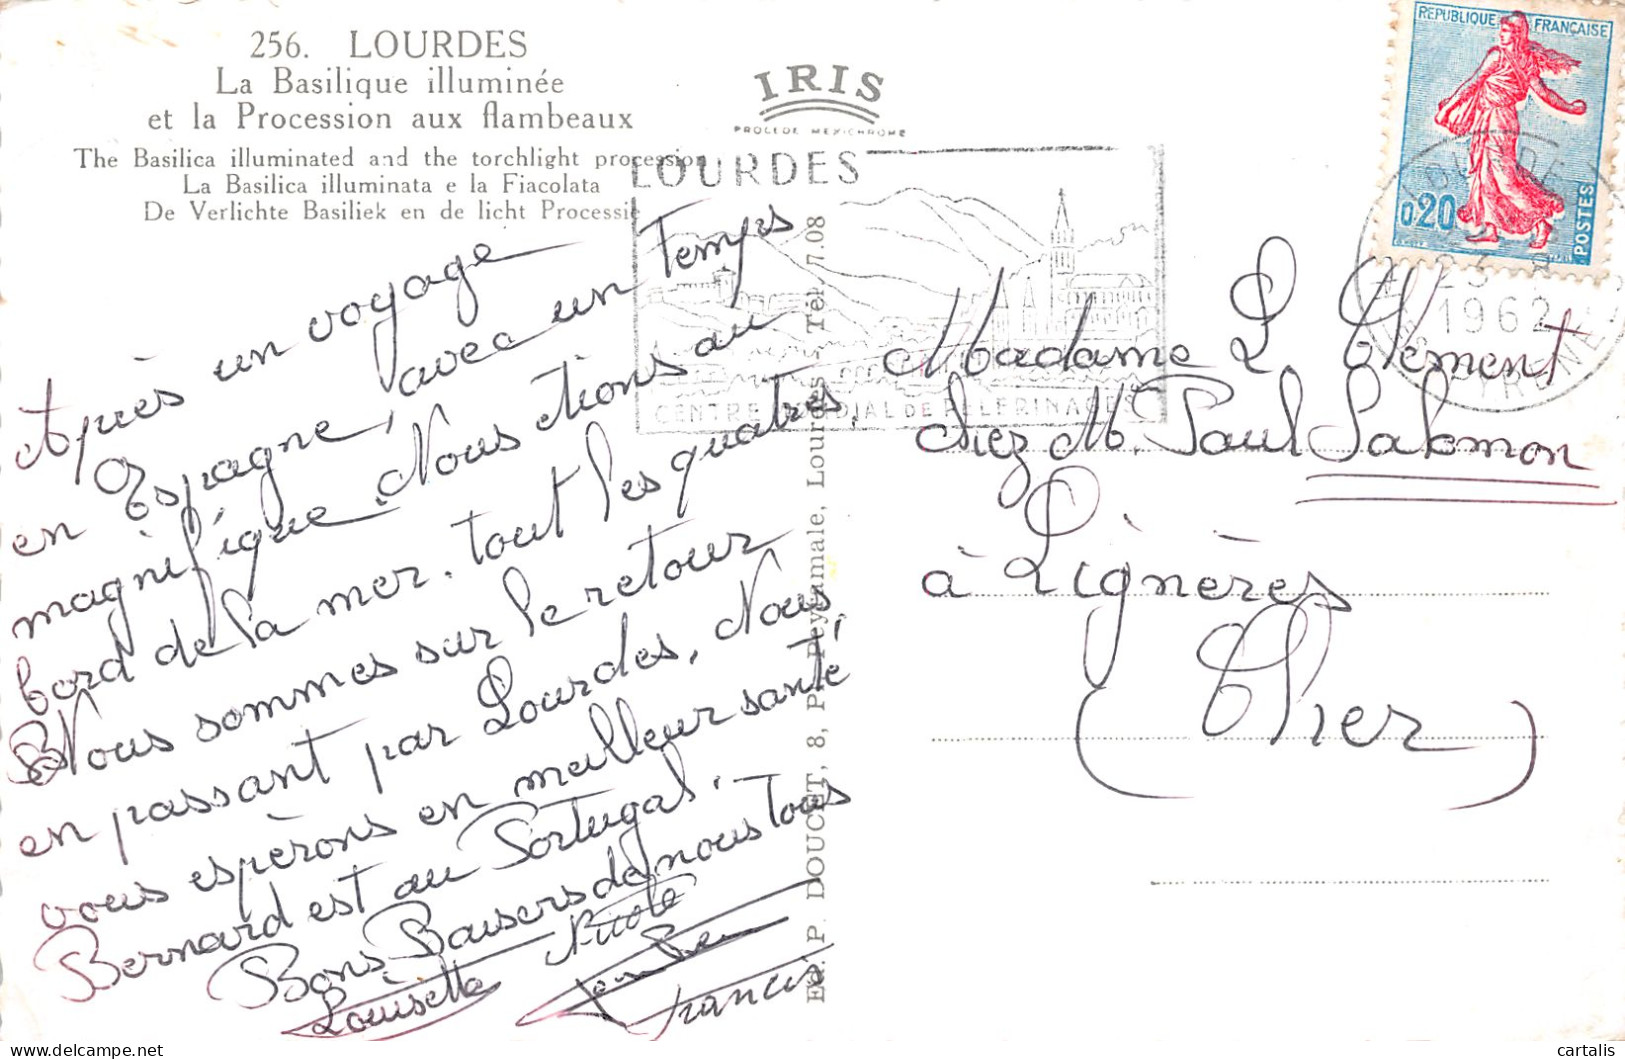 256. LOURDES
La Basilique illuminée
et la Procession aux flambeaux
The Basilica illuminated and the torchlight procession
La Basilica illuminata e la Fiacolata
De Verlichte Basiliek en de licht Processie
IRIS
PROCEDE MEXICHROME
REPUBLIQUE FRANÇAISE
0,20
POSTES
LOURDES
CENTRE MONDIAL DE PELERINAGES
1962
Après un voyage
en Espagne, avec un Temps
magnifique. Nous étions au
bord de la mer. tout les quatres,
Nous sommes sur le retour
en passant par Lourdes, Nous
vous espèrons en meilleur santé
Bernard est au Portugal.
Bons Baisers de nous Tous
Louisette Nicole
Francis
Madame L Clément
chez M. Paul Salomon
à Lignères
(Cher)
Ed. P. DOUCET, 8, P. Peyramale, Lourdes - Tél. 7.08
cartalis